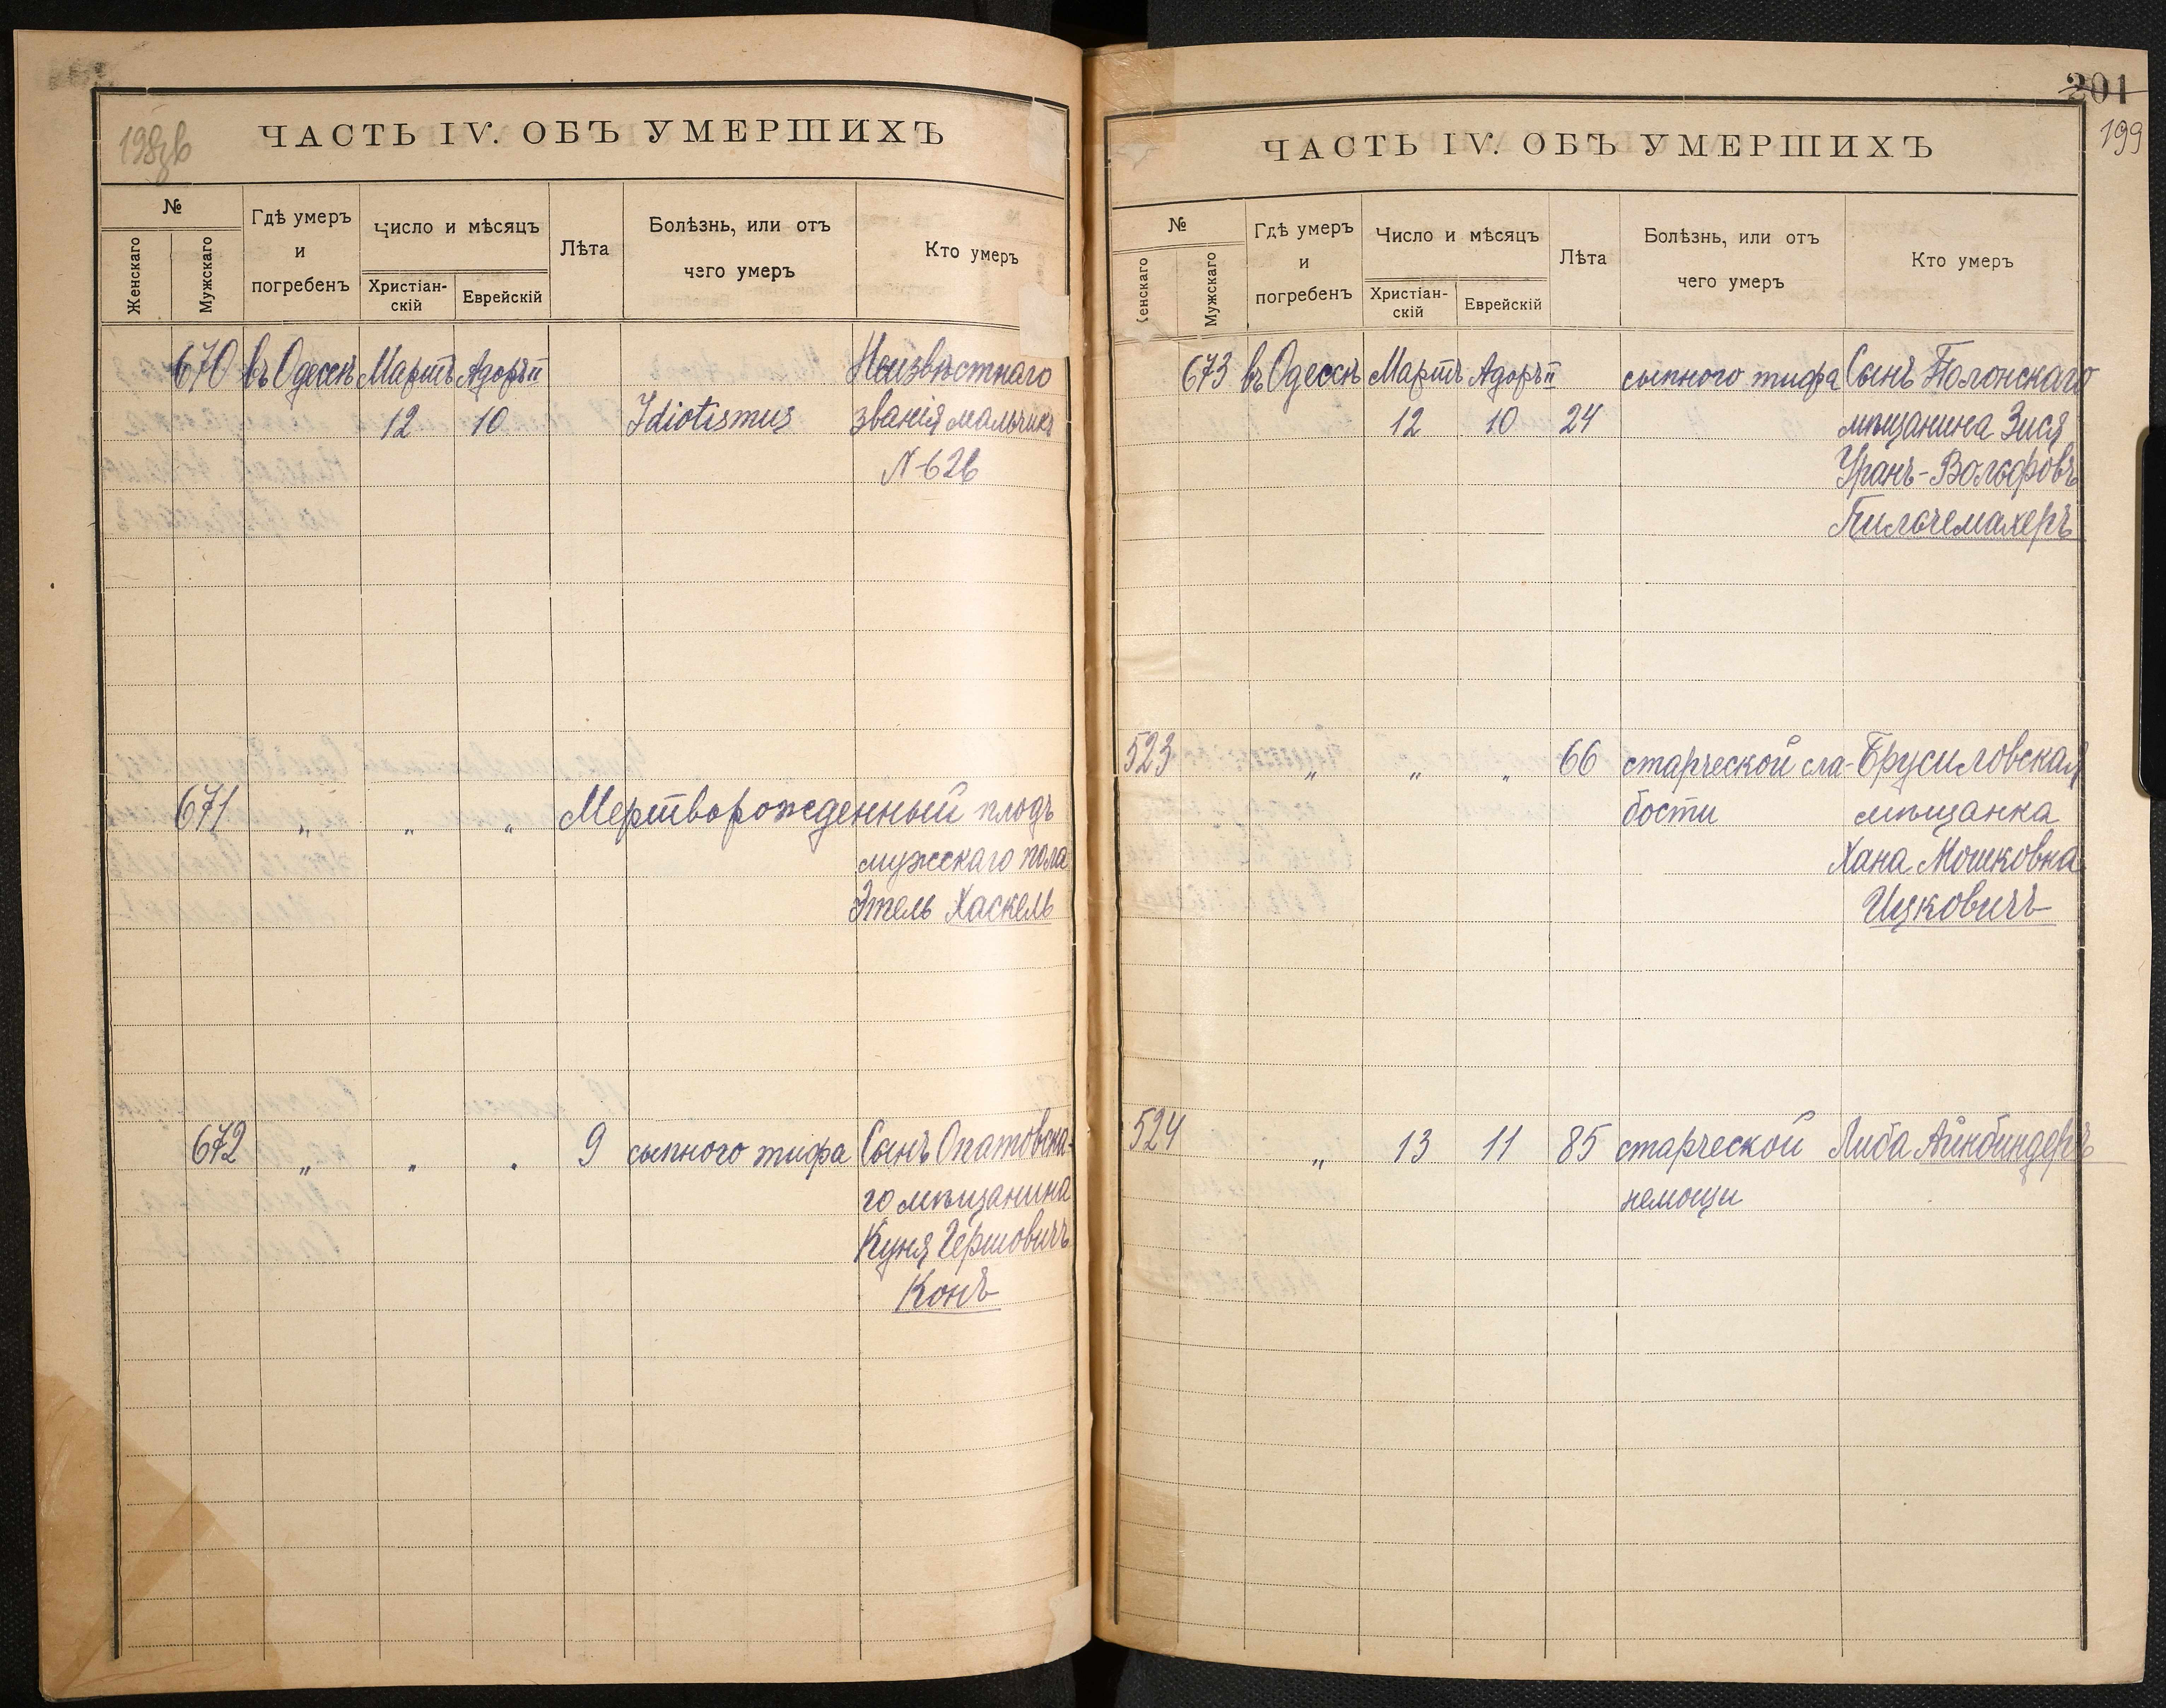 ЧАСТЬ IV. ОБЪ УМЕРШИХЪ
№
Женскаго
Мужскаго
Гдѣ умеръ
и
погребенъ
Число и мѣсяцъ
Христіан-
скій
Еврейскій
Лѣта
Болѣзнь, или отъ
чего умеръ
Кто умеръ
670 въ Одессѣ Мартъ Адоръ II Неизвѣстнаго
12 10 Idiotismus званія мальчикъ
N-626
671 " " " Мертворожденный плодъ
мужскаго пола
Этель Хаскель
672 " " " 9 сыпного тифа Сынъ Опатовска-
го мѣщанина
Куня Гершовичъ
Конъ
201
199
ЧАСТЬ IV. ОБЪ УМЕРШИХЪ
№
Женскаго
Мужскаго
Гдѣ умеръ
и
погребенъ
Число и мѣсяцъ
Христіан-
скій
Еврейскій
Лѣта
Болѣзнь, или отъ
чего умеръ
Кто умеръ
673 въ Одессѣ Мартъ Адоръ II сыпного тифа Сынъ Полонскаго
12 10 24 мѣщанина Зися
Уранъ-Вольфовъ
Пильчемахеръ
523 " " " 66 старческой сла- Брусиловская
бости мѣщанка
Хана Мошковна
Ицковичъ
524 " 13 11 85 старческой Либа Айнбиндеръ
немощи